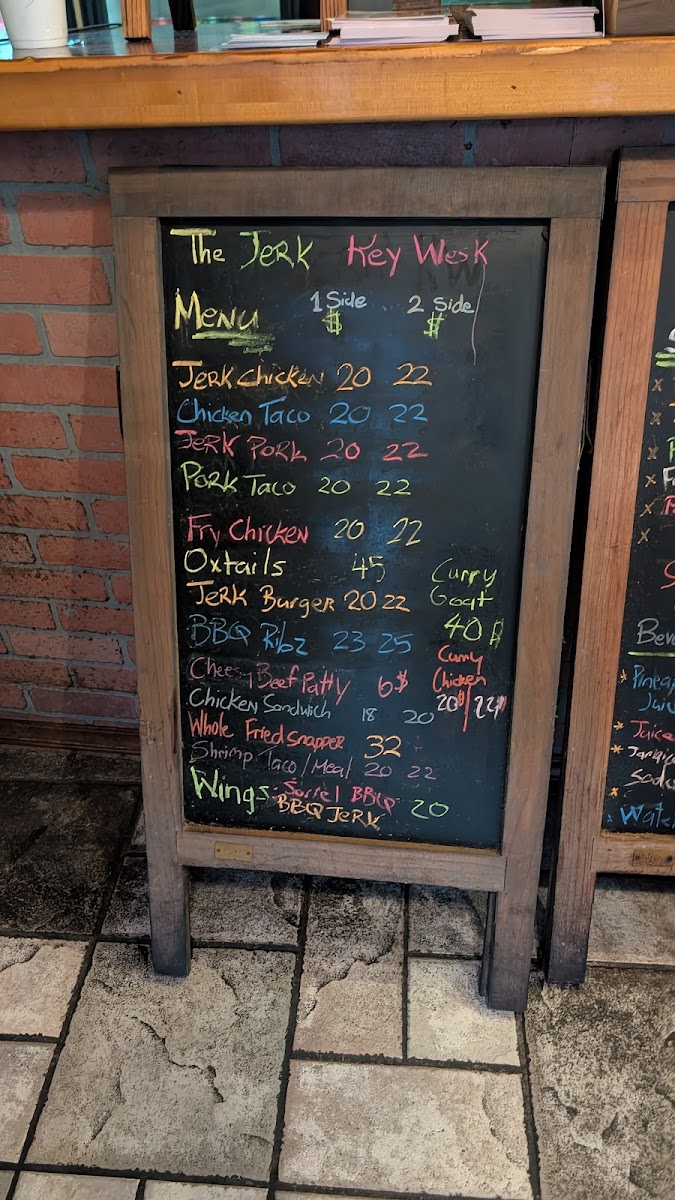 The Jerk Key Wesk
Menu 1 Side 2 Side
$ $
Jerk Chicken 20 22
Chicken Taco 20 22
Jerk Pork 20 22
Pork Taco 20 22
Fry Chicken 20 22
Oxtails 45
Jerk Burger 20 22
BBQ Ribz 23 25
Cheesy Beef Patty 6$
Chicken Sandwich 18 20
Whole Fried Snapper 32
Shrimp Taco/Meal 20 22
Wings: Sorrel BBQ 20
BBQ Jerk
Curry
Goat
40$
Curry
Chicken
20$/22$
Juice